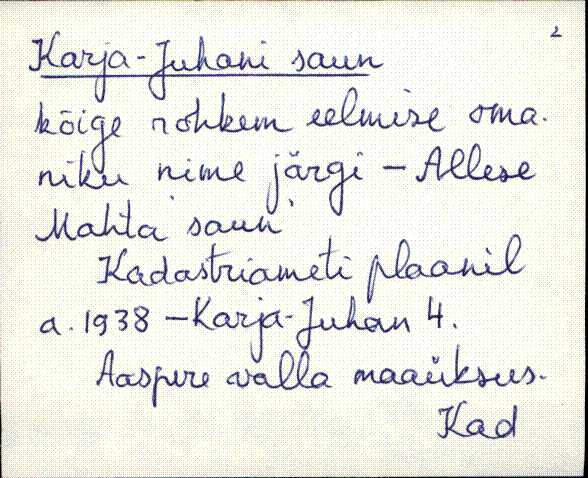 2
Karja-Juhani saun
kõige rohkem eelmise oma-
niku nime järgi – Allese
Mahta saun
Kadastriameti plaanil
a. 1938 – Karja-Juhan 4.
Aaspere valla maaüksus.
Kad